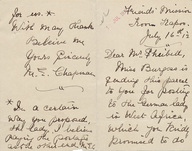 for us. *
With Many Thanks
Believe me
Yours Sincerely
M. E. Chapman
* In a certain
way you proposed,
the lady I believe
paying the postage
Friends' Mission
July 16th
Dear Mr
Miss Burgess is
sending this parcel
to you for posting
to the German lad
in West Africa,
which you kindly
promised to do